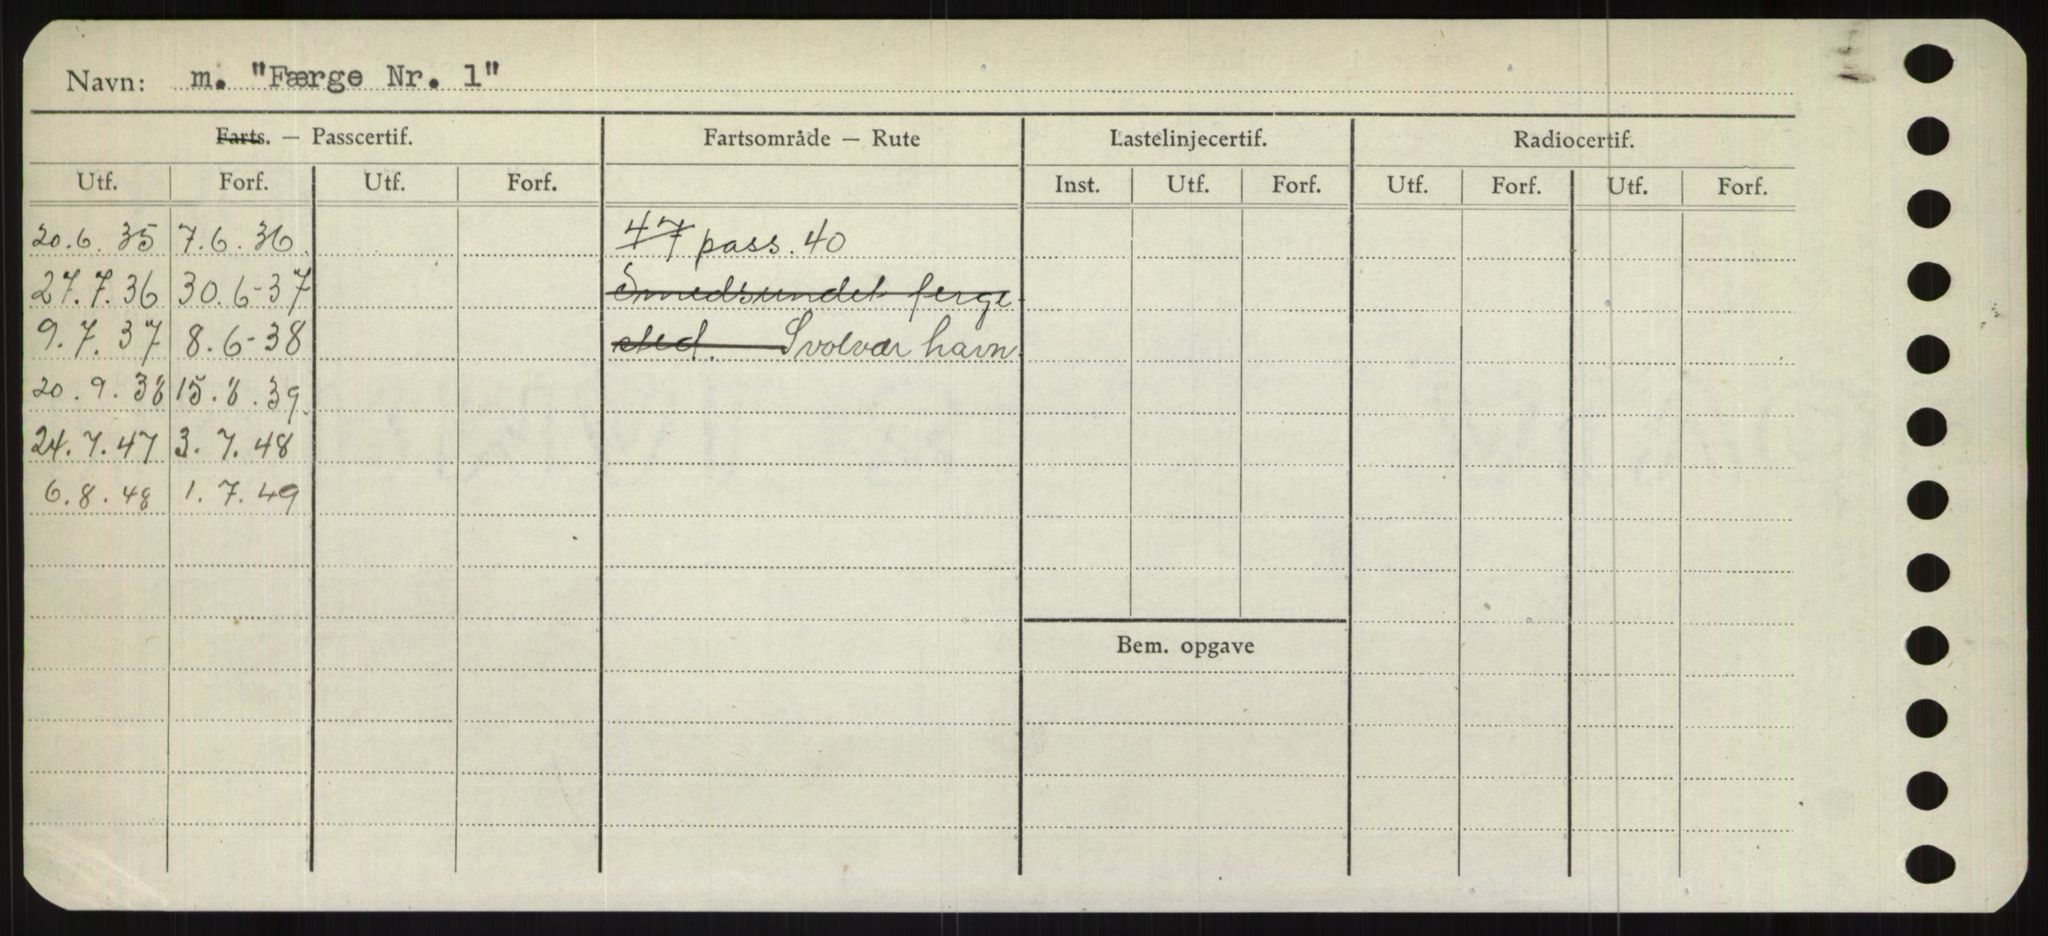 Navn: m. "Færge Nr. 1"
Farts. — Passcertif. Fartsområde — Rute Lastelinjecertif. Radiocertif.
Utf. Forf. Utf. Forf. Inst. Utf. Forf. Utf. Forf. Utf. Forf.
20.6.35 7.6.36 47 pass. 40
27.7.36 30.6-37 Smedsundet ferge
9.7.37 8.6-38 sted. Svolvær havn.
20.9.38 15.8.39
24.7.47 3.7.48
6.8.48 1.7.49
Bem. opgave